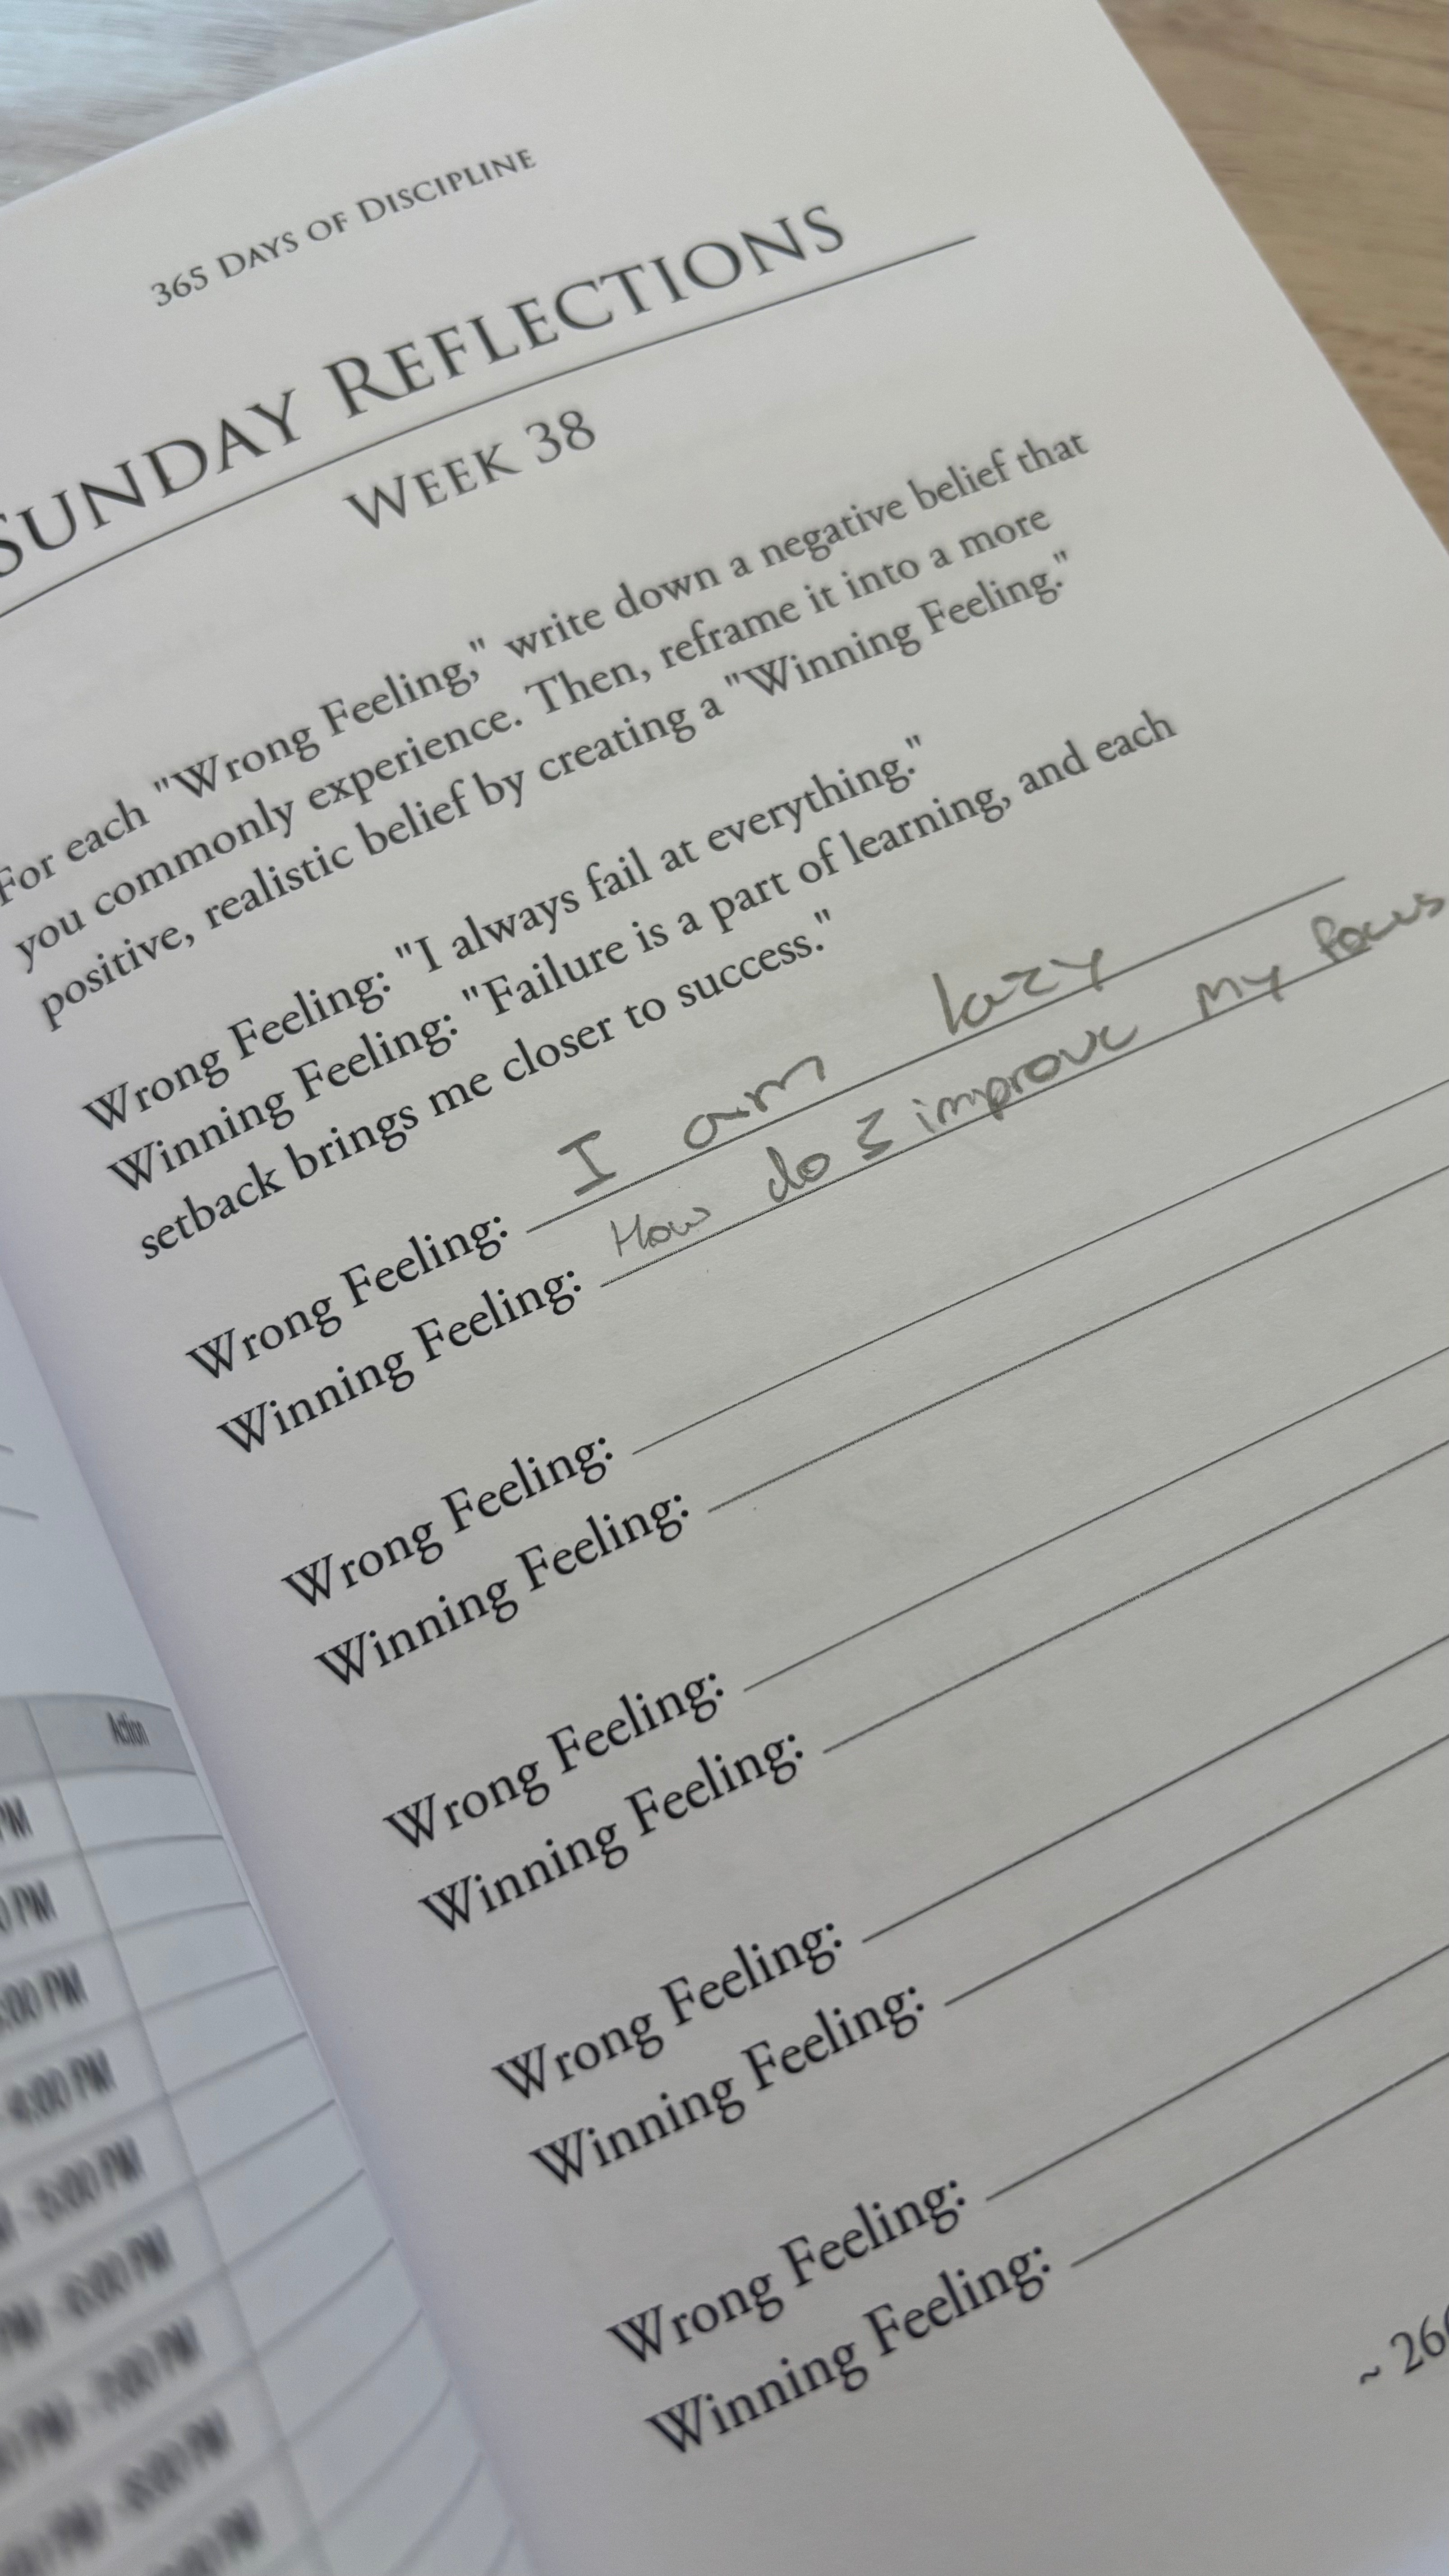 365 DAYS OF DISCIPLINE
SUNDAY REFLECTIONS
WEEK 38
For each "Wrong Feeling," write down a negative belief that
you commonly experience. Then, reframe it into a more
positive, realistic belief by creating a "Winning Feeling."
Wrong Feeling: "I always fail at everything."
Winning Feeling: "Failure is a part of learning, and each
setback brings me closer to success."
Wrong Feeling: I am lazy
Winning Feeling: How do I improve my focus
Wrong Feeling:
Winning Feeling:
Wrong Feeling:
Winning Feeling:
Wrong Feeling:
Winning Feeling:
Wrong Feeling:
Winning Feeling:
Action
PM
PM
:00 PM
4:00 PM
- 5:00 PM
PM - 6:00 PM
PM - 7:00 PM
PM - 8:00 PM
PM